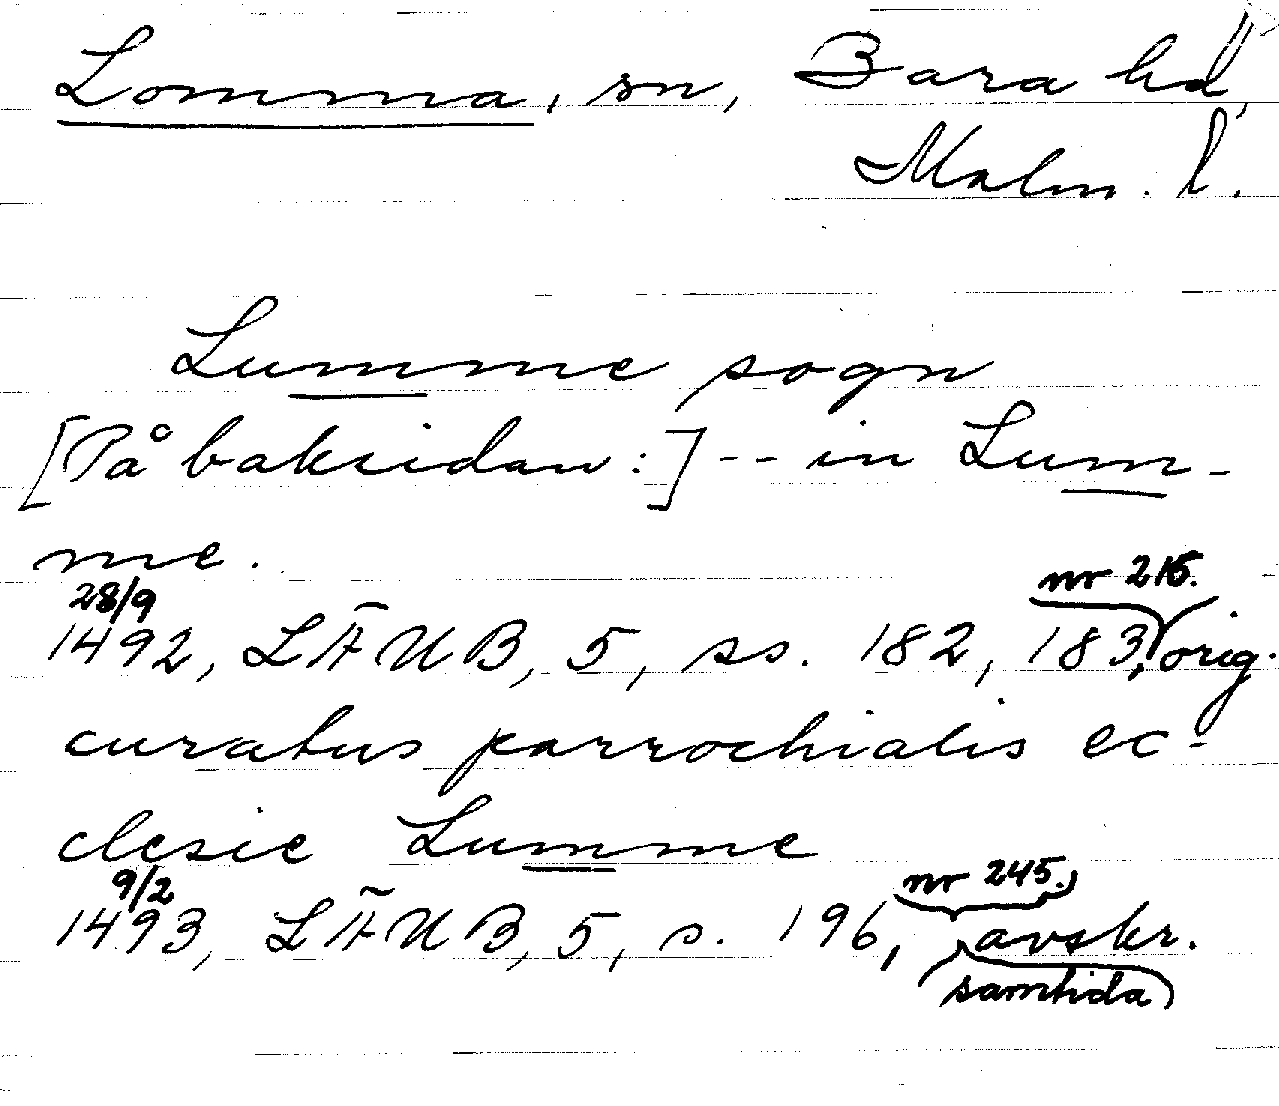 Lomma, sn, Bara hd,
Malm. l.
Lumme sogn
[På baksidan:] -- in Lum-
me.
28/9 nr 215.
1492, LÄUB, 5, ss. 182, 183, orig.
curatus parrochialis ec-
clesie Lumme
9/2 nr 245.
1493, LÄUB, 5, s. 196, avskr.
samtida